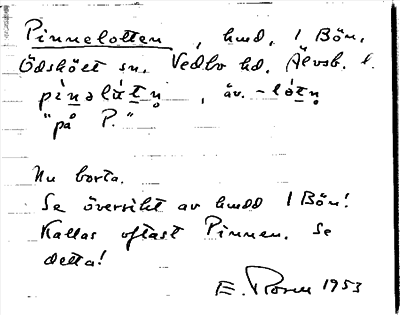 Pinnelotten, hmd, 1 Bön,
Ödskölt sn. Vedbo hd. Älvsb. l.
pinəlàtn̥, äv. -lòtn̥
"på P."
Nu borta.
Se översikt av hmdd 1 Bön!
Kallas oftast Pinnen. Se
detta!
E. 1953